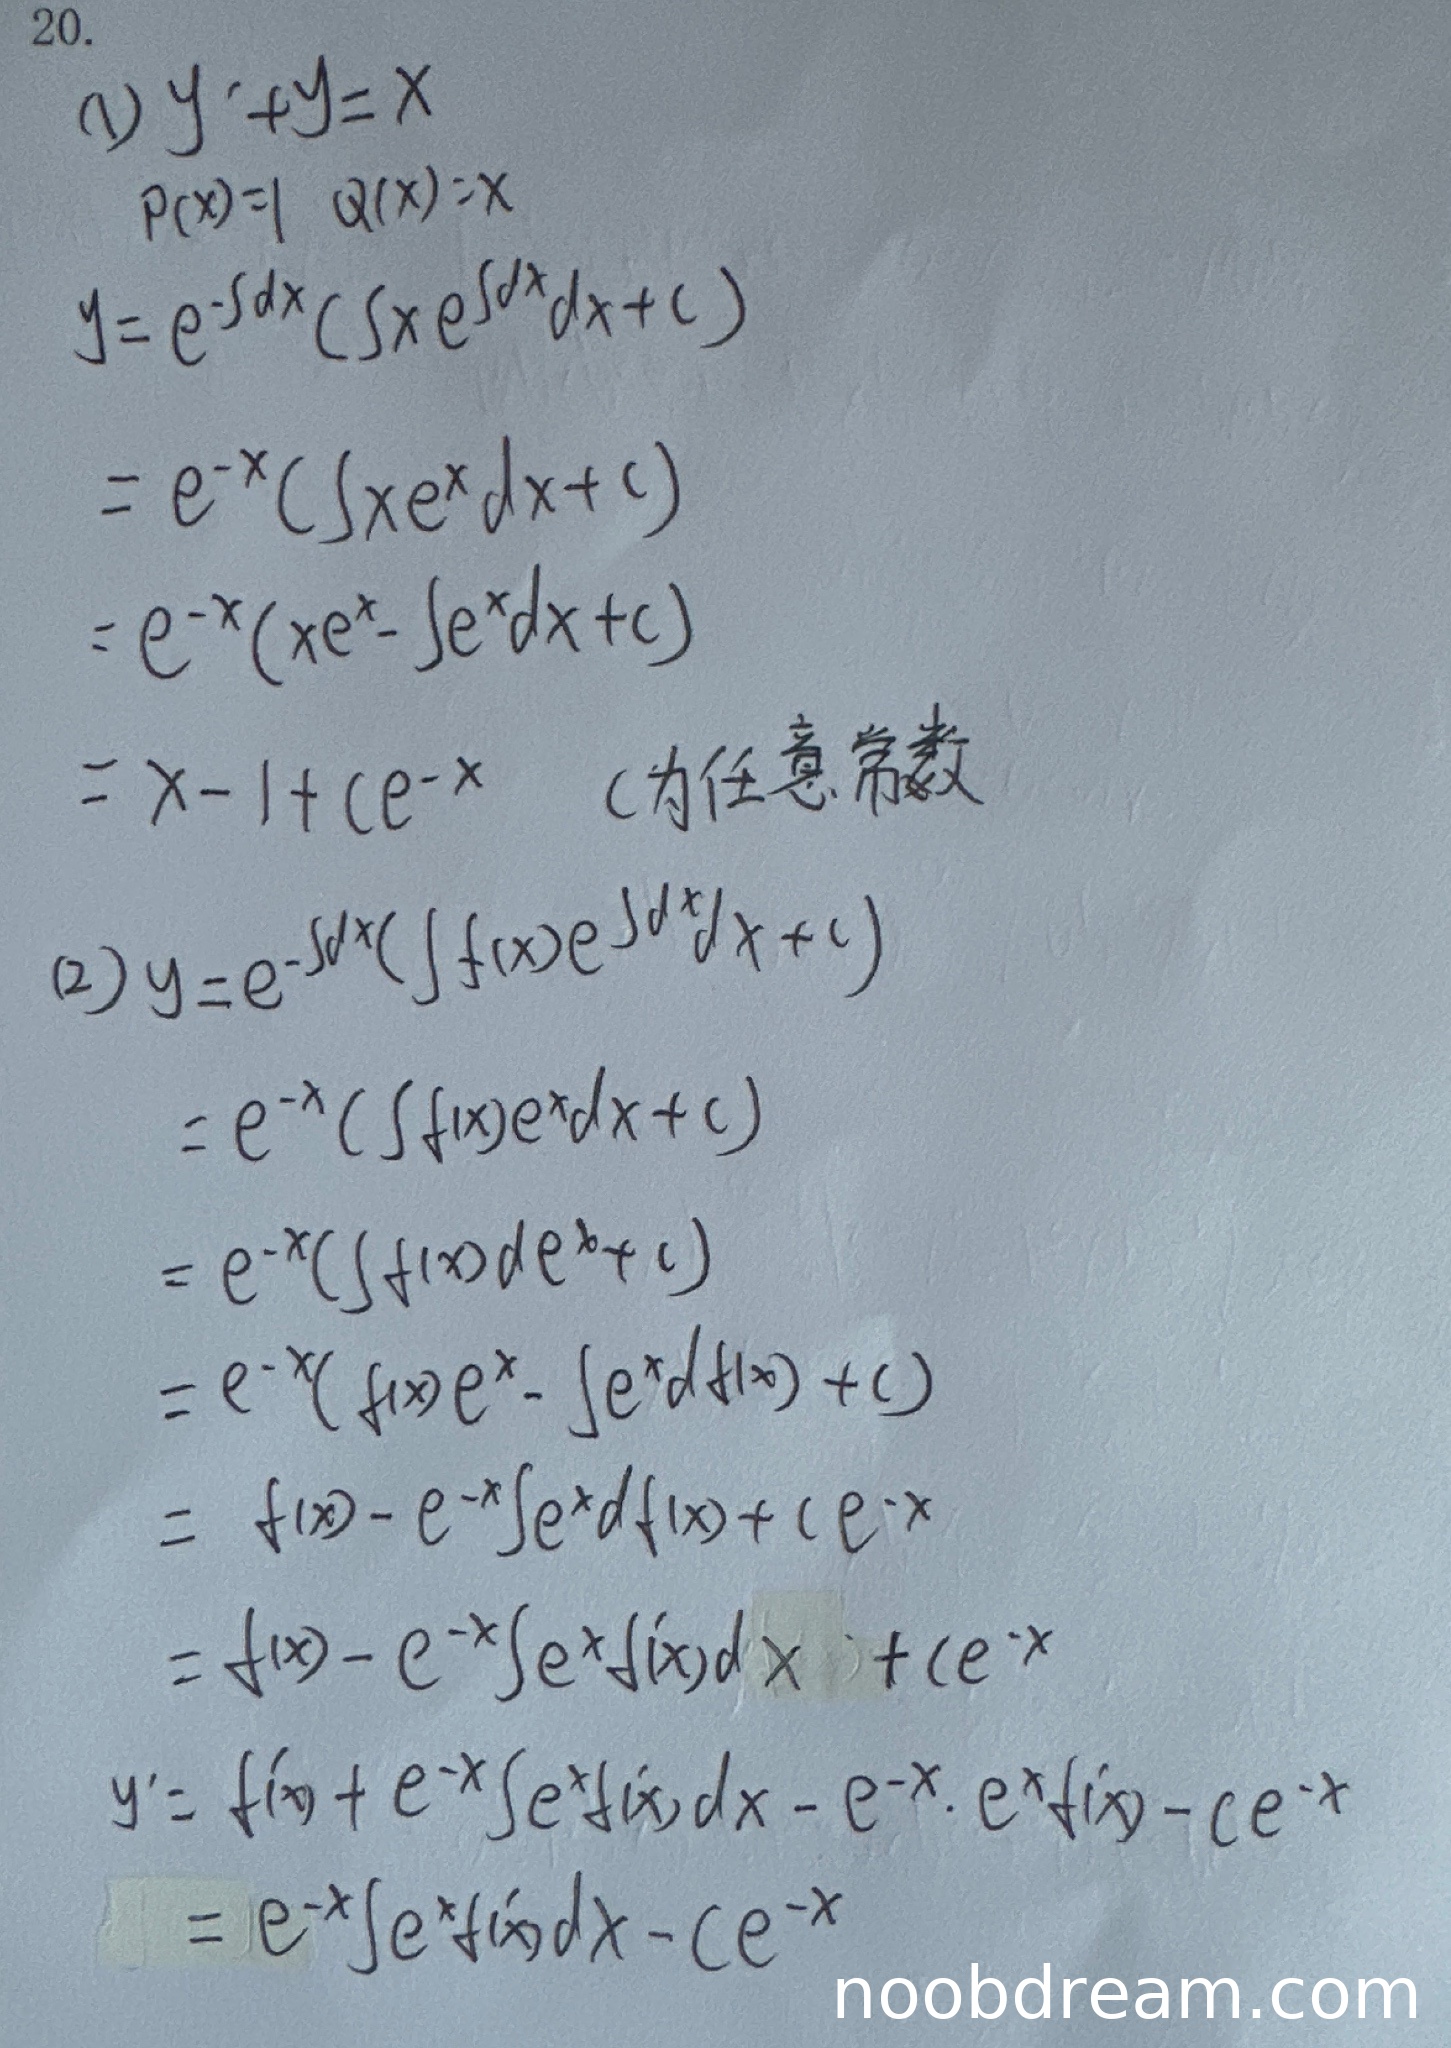 20.
(1) y′+y=x
P(x)=1 Q(x)=x
y=e^{-∫dx}(∫xe^{∫dx}dx+C)
=e^{-x}(∫xe^{x}dx+C)
=e^{-x}(xe^{x}-∫e^{x}dx+C)
=x-1+Ce^{-x} C为任意常数
(2) y=e^{-∫dx}(∫f(x)e^{∫dx}dx+C)
=e^{-x}(∫f(x)e^{x}dx+C)
=e^{-x}(∫f(x)de^{x}+C)
=e^{-x}(f(x)e^{x}-∫e^{x}df(x)+C)
=f(x)-e^{-x}∫e^{x}df(x)+Ce^{-x}
=f(x)-e^{-x}∫e^{x}f′(x)dx+Ce^{-x}
y′=f′(x)+e^{-x}∫e^{x}f′(x)dx-e^{-x}·e^{x}f′(x)-Ce^{-x}
=e^{-x}∫e^{x}f′(x)dx-Ce^{-x}
noobdream.com